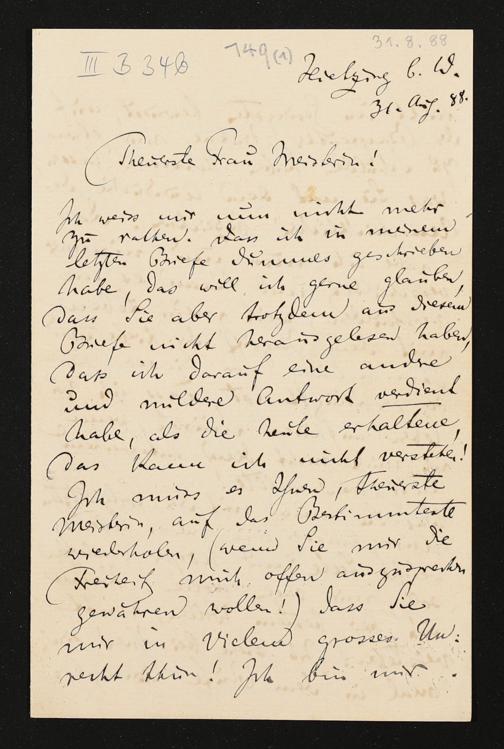 31.8.88
III B 346
149(1)
Hietzing b. W.
31. Aug. 88.
Theuerste Frau Meisterin!
Ich weiss mir nun nicht mehr
zu rathen. Dass ich in meinem
letzten Briefe Dummes geschrieben
habe, das will ich gerne glauben,
dass Sie aber trotzdem aus diesem
Briefe nicht herausgelesen haben,
dass ich darauf eine andre
und mildere Antwort verdient
habe, als die heute erhaltene,
das kann ich nicht verstehen!
Ich muss es Ihnen, theuerste
Meisterin, auf das Bestimmteste
wiederholen, (wenn Sie mir die
Freiheit mich offen auszusprechen
gewähren wollen!) dass Sie
mir in Vielem grosses Un-
recht thun! Ich bin mir